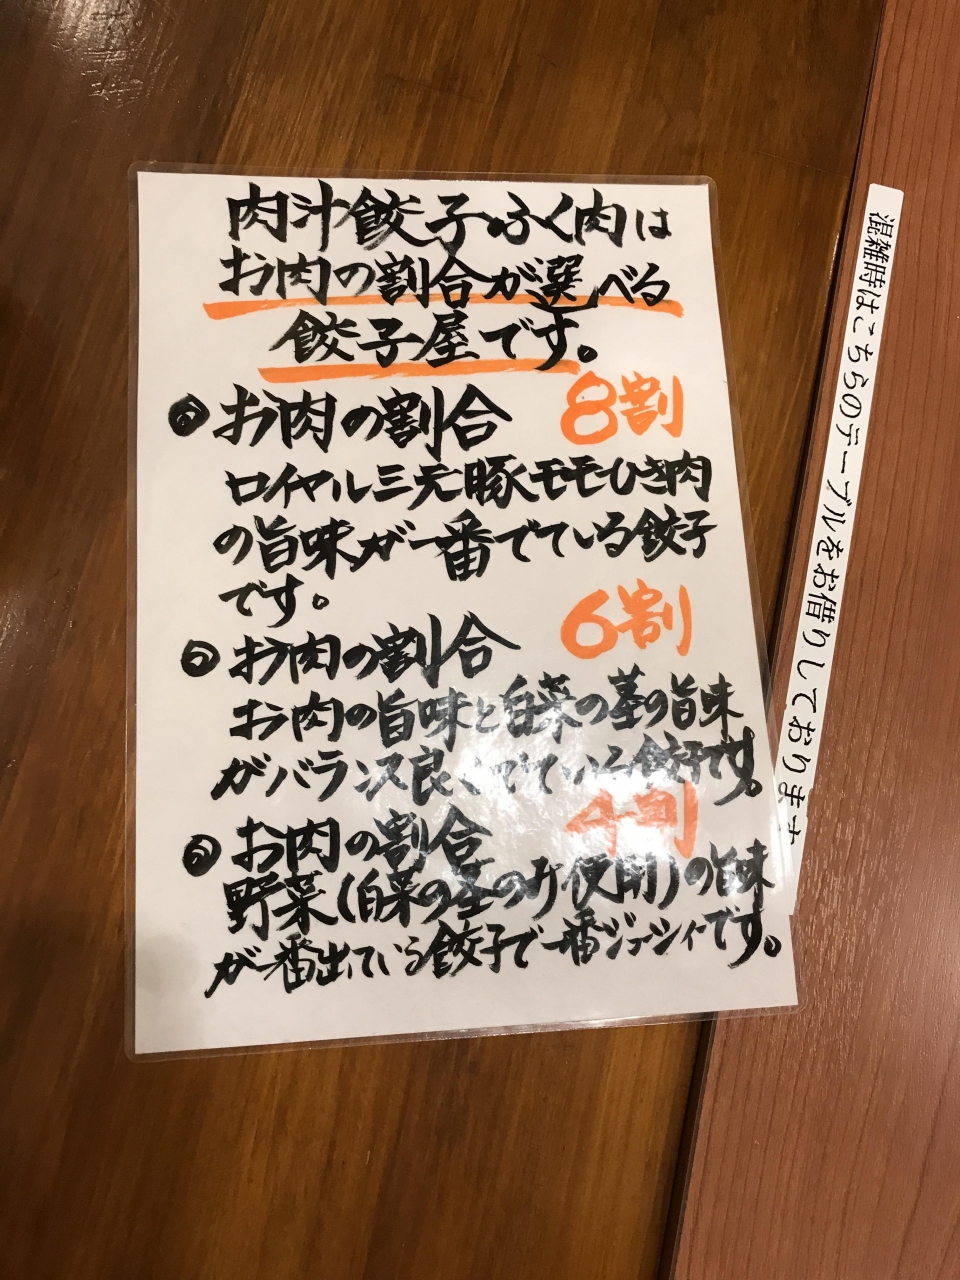 肉汁餃子ふく肉は
お肉の割合が選べる
餃子屋です。
お肉の割合 8割
ロイヤル三元豚モモひき肉
の旨味が一番でている餃子
です。
お肉の割合 6割
お肉の旨味と白菜の茎の旨味
がバランス良くでている餃子です。
お肉の割合 4割
野菜(白菜の茎のみ使用)の旨味
が一番出ている餃子で一番ジューシィーです。
混雑時はこちらのテーブルをお借りしております